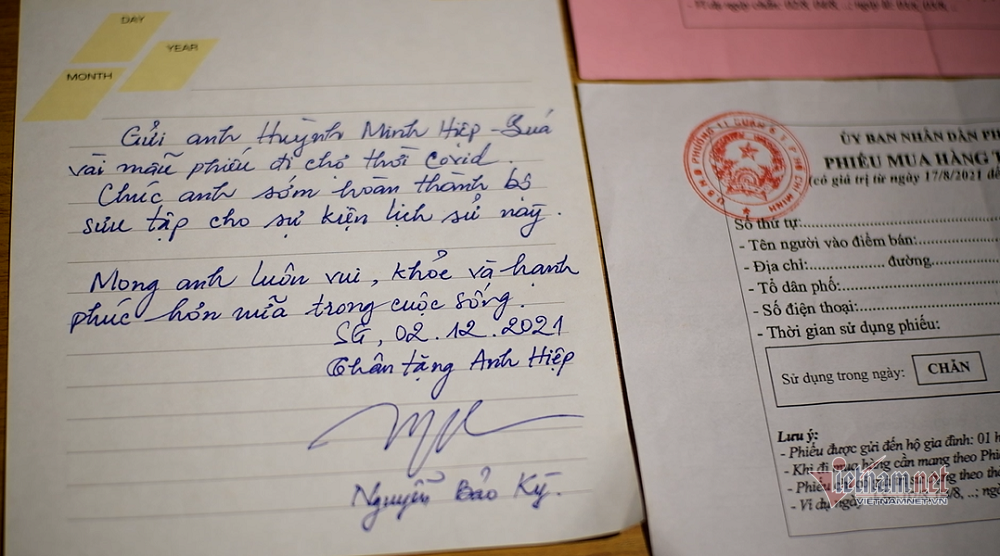 DAY
YEAR
MONTH
Gửi anh Huỳnh Minh Hiệp
vài mẫu phiếu đi chợ thời Covid.
Chúc anh sớm hoàn thành bộ
sưu tập cho sự kiện lịch sử này.
Mong anh luôn vui, khỏe và hạnh
phúc hơn nữa trong cuộc sống.
SG, 02.12.2021
Chân tặng Anh Hiệp
Nguyễn Bảo Kỳ.
ỦY BAN NHÂN DÂN
PHIẾU MUA HÀNG
(có giá trị từ ngày 17/8/2021
Số thứ tự:
- Tên người vào điểm bán:
- Địa chỉ: đường
- Tổ dân phố:
- Số điện thoại:
- Thời gian sử dụng phiếu:
Sử dụng trong ngày: CHẴN
Lưu ý:
- Phiếu được gửi đến hộ gia đình: 01
- Khi đi mua hàng cần mang theo
- Phiếu
- Ví dụ ngày
Vietnamnet
VIETNAMNET.VN